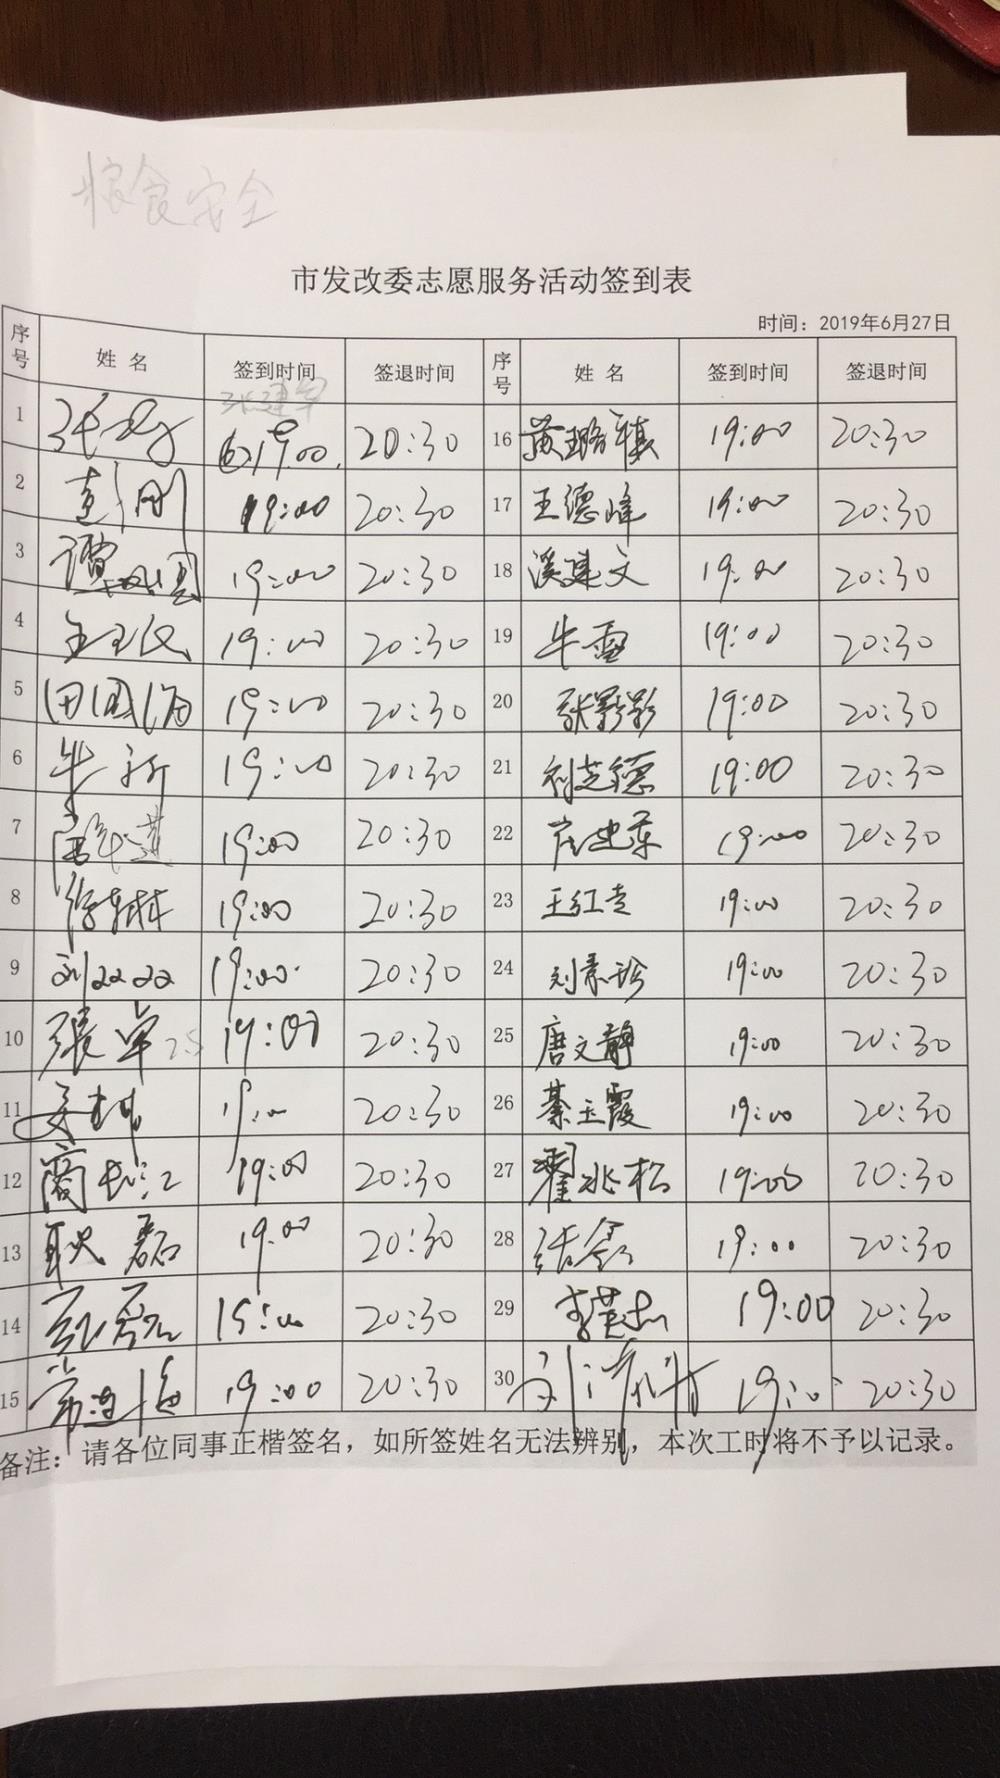 粮食安全
市发改委志愿服务活动签到表
时间：2019年6月27日
序号 姓 名 签到时间 签退时间 序号 姓 名 签到时间 签退时间
张建军
1 20:30 16 黄璐祺 19:00 20:30
2 彭刚 19:00 20:30 17 王德峰 19:00 20:30
3 19:00 20:30 18 溪建文 19:00 20:30
4 19:00 20:30 19 牛雪 19:00 20:30
5 田国海 19:00 20:30 20 张影影 19:00 20:30
6 牛新 19:00 20:30 21 刘芝德 19:00 20:30
7 19:00 20:30 22 19:00 20:30
8 19:00 20:30 23 王红走 19:00 20:30
9 刘双双 19:00 20:30 24 刘素珍 19:00 20:30
10 張卓 25 19:00 20:30 25 唐文静 19:00 20:30
11 姜楠 19:00 20:30 26 綦玉霞 19:00 20:30
12 商 19:00 20:30 27 翟兆松 19:00 20:30
13 耿磊 19:00 20:30 28 19:00 20:30
14 20:30 29 19:00 20:30
15 常连海 19:00 20:30 30 19:00 20:30
备注：请各位同事正楷签名，如所签姓名无法辨别，本次工时将不予以记录。